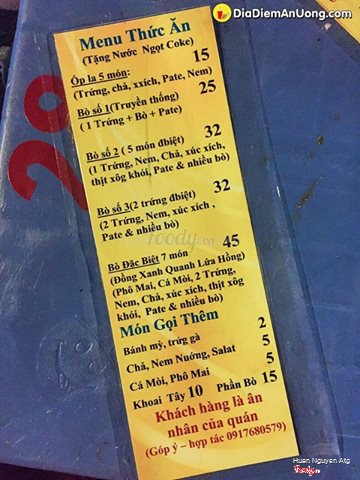 DiaDiemAnUong.com
Menu Thức Ăn
(Tặng Nước Ngọt Coke)
Ốp la 5 món: 15
(Trứng, chả, xxích, Pate, Nem)
Bò số 1(Truyền thống) 25
( 1 Trứng + Bò + Pate)
Bò số 2 ( 5 món đbiệt) 32
(1 Trứng, Nem, Chả, xúc xích,
thịt xôg khói, Pate & nhiều bò)
Bò số 3(2 trứng đbiệt) 32
(2 Trứng, Nem, xúc xích ,
Pate & nhiều bò)
foody.vn
Bò Đặc Biệt 7 món 45
(Đồng Xanh Quanh Lửa Hồng)
(Phô Mai, Cá Mòi, 2 Trứng,
Nem, Chả, xúc xích, thịt xôg
khói, Pate & nhiều bò)
Món Gọi Thêm
Bánh mỳ, trứg gà 2
Chả, Nem Nướng, Salat 5
Cá Mòi, Phô Mai 5
Khoai Tây 10 Phần Bò 15
Khách hàng là ân
nhân của quán
(Góp ý – hợp tác 0917680579)
Huan Nguyen Atg
foody.vn